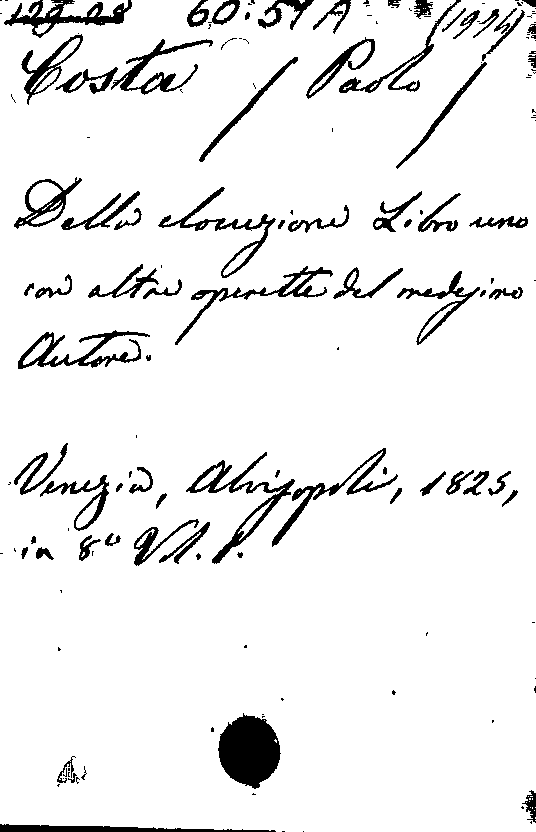 60.57 A
Costa / Paolo /
Della elocuzione Libro uno
con altre operette del medesimo
Autore.
Venezia, Alvisopoli, 1825,
in 8° Vol. 1.